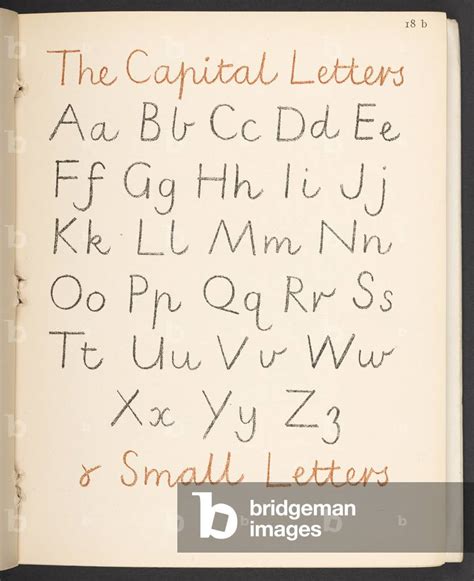 18 b
The Capital Letters
Aa Bb Cc Dd Ee
Ff Gg Hh Ii Jj
Kk Ll Mm Nn
Oo Pp Qq Rr Ss
Tt Uu Vv Ww
Xx Yy Zz
& Small Letters
b bridgeman
images